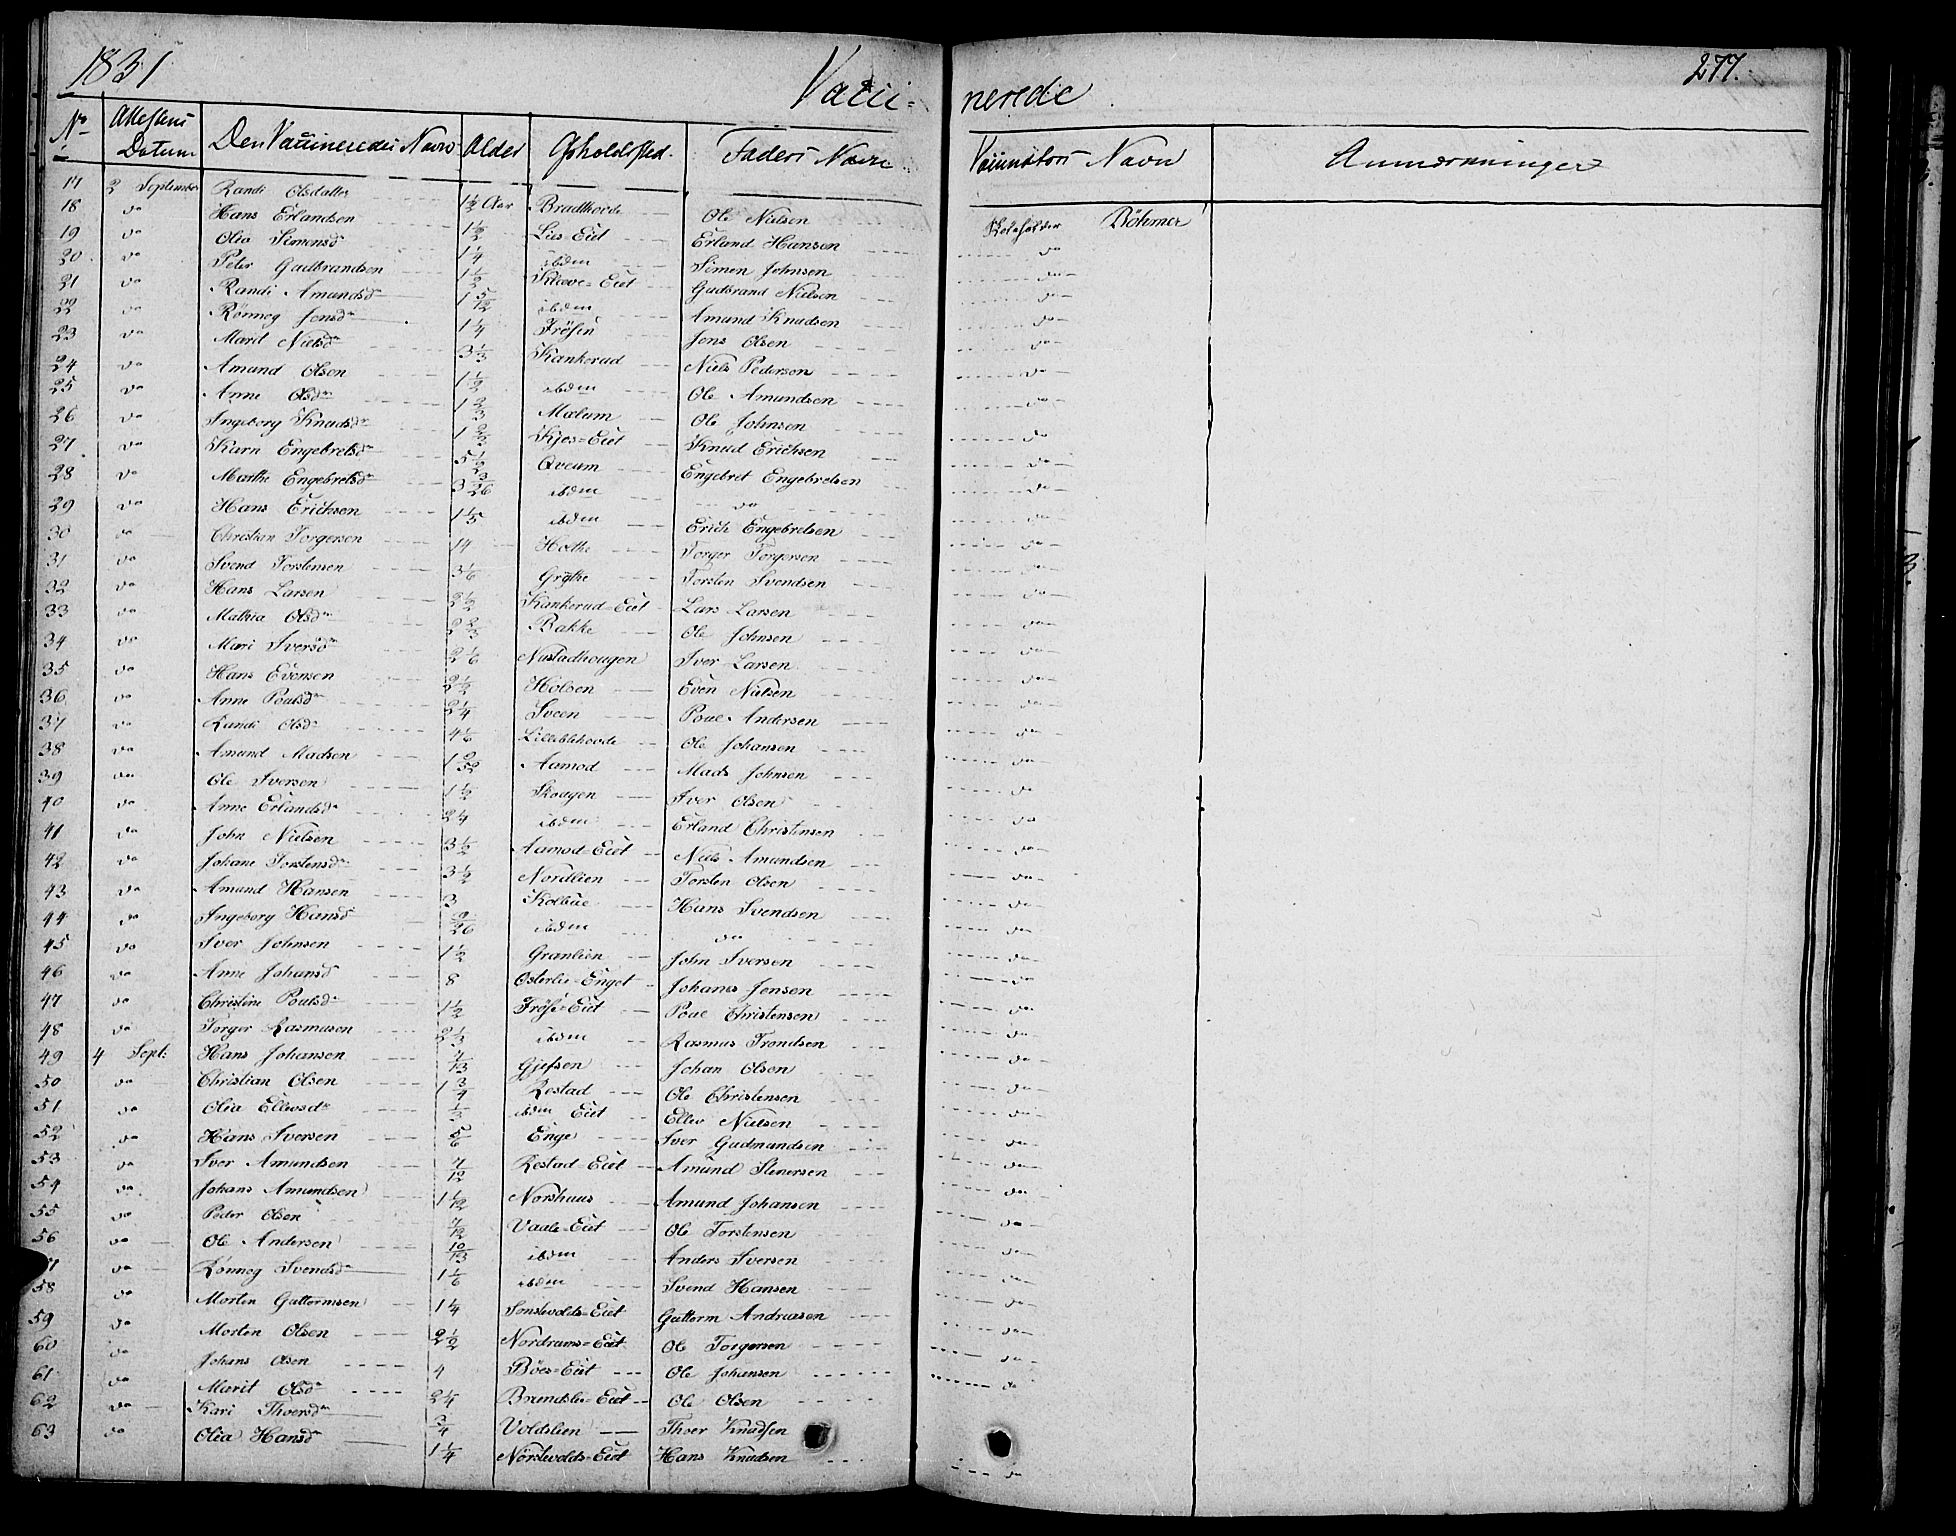 1831 Vacci- nerede 277.
No Attestens Datum Den Vaccineredes Navn Alder Opholdssted. Faders Navn Vaccinators Navn Anmærkninger
17 3 September Randi Olsdatter 1 1/2 Aar Bradthovde Ole Nielsen Böhmer
18 do Hans Erlandsen 1 1/2 Lies-Eiet Erland Hansen do
19 do Olia Simensd 1 1/4 ibdm Simen Johnsen do
20 do Peter Gudbrandsen 1 1/2 Klæve-Eiet Gudbrand Nielsen do
21 do Randi Amundsd 1 5/12 ibdm Amund Knudsen do
22 do Rønneg Jensdr 1 1/4 Frösin Jens Olsen do
23 do Marit Nielsdr 3 1/3 Kankerud Niels Pedersen do
24 do Amund Olsen 1 1/2 ibdm Ole Amundsen do
25 do Anne Olsdr 1 2/3 Mælum Ole Johnsen do
26 do Ingeborg Knudsdr 1 2/3 Kjos-Eiet Knud Erichsen do
27 do Karn Engebretsdr 5 1/2 Qveum Engebret Engebretsen do
28 do Marthe Engebretsdr 3 3/26 ibdm do do
29 do Hans Erichsen 1 1/5 ibdm Erich Engebretsen do
30 do Christian Torgersen 14 Hothe Torger Torgersen do
31 do Svend Torstensen 3 1/6 Grythe Torsten Svendsen do
32 do Hans Larsen 2 1/2 Kankerud-Eiet Lars Larsen do
33 do Mathia Olsdr 2 2/3 Bakke Ole Johnsen do
34 do Mari Iversdr 2 1/6 Nustadhougen Iver Larsen do
35 do Hans Evensen 2 1/2 Holsen Even Nielsen do
36 do Anne Poulsdr 2 1/4 Sveen Poul Andersen do
37 do Randi Olsdr 4 1/6 Lilleblehovde Ole Johansen do
38 do Amund Madsen Aamod Mads Johnsen do
39 do Ole Iversen 1 1/2 Skougen Iver Olsen do
40 do Anne Erlandsdr 2 1/4 ibdm Erland Christensen do
41 do John Nielsen 3 1/2 Aamod-Eiet Niels Amundsen do
42 do Johane Torstensdr 3 1/2 Nordlien Torsten Olsen do
43 do Amund Hansen 3 Kolbue Hans Svendsen do
44 do Ingeborg Hansd 9/26 ibdm do do
45 do Iver Johnsen 1 1/2 Granlien John Iversen do
46 do Anne Johansd 8 Osterlie-Enget Johanes Jensen do
47 do Christine Poulsdr 1 1/2 Fröse-Eiet Poul Christensen do
48 do Torger Rasmusen 2 1/3 ibdm Rasmus Trondsen do
49 4 Sept: Hans Johansen 7/13 Gjefsen Johan Olsen do
50 do Christian Olsen 1 3/4 Restad Ole Christensen do
51 do Olia Ellevsdr 1/3 ibdm Eiet Ellev Nielsen do
52 do Hans Iversen 5/6 Enge Iver Gudmundsen do
53 do Iver Amundsen 7/12 Restad-Eiet Amund Stenersen do
54 do Johans Amundsen 1 1/12 Norshuus Amund Johansen do
55 do Peder Olsen 7/12 Vaale-Eiet Ole Torstensen do
56 do Ole Andersen 10/13 ibdm Anders Iversen do
do Rönneg Svendsdr 1 1/6 ibdm Svend Hansen do
58 do Morten Guttormsen 1 1/4 Sonstevolds-Eiet Guttorm Andreasen do
59 do Morten Olsen 2 1/2 Nordrums-Eiet Ole Torgersen do
60 do Johans Olsen 4 Böes-Eiet Ole Johansen do
61 do Marit Olsdr 2 1/4 Brændslie-Eiet Ole Olsen do
62 do Kari Thoersdr 3/4 Voldslien Thoer Knudsen
63 do Olia Hansdr 1 1/4 Nörstevolds-Eiet Hans Knudsen do